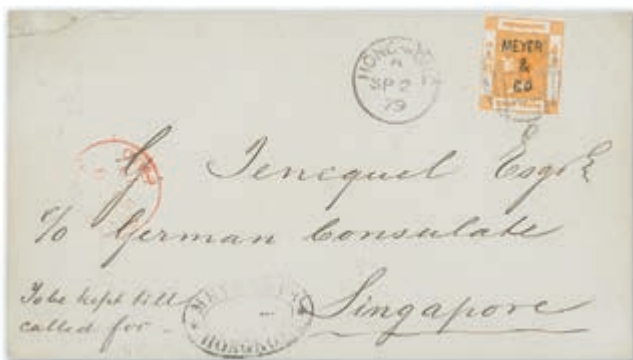 HONG KONG
A
SP 2
79
MEYER
&
CO
G Jencquel Esqre
c/o German Consulate
To be kept till
called for -
Singapore
HONGKONG